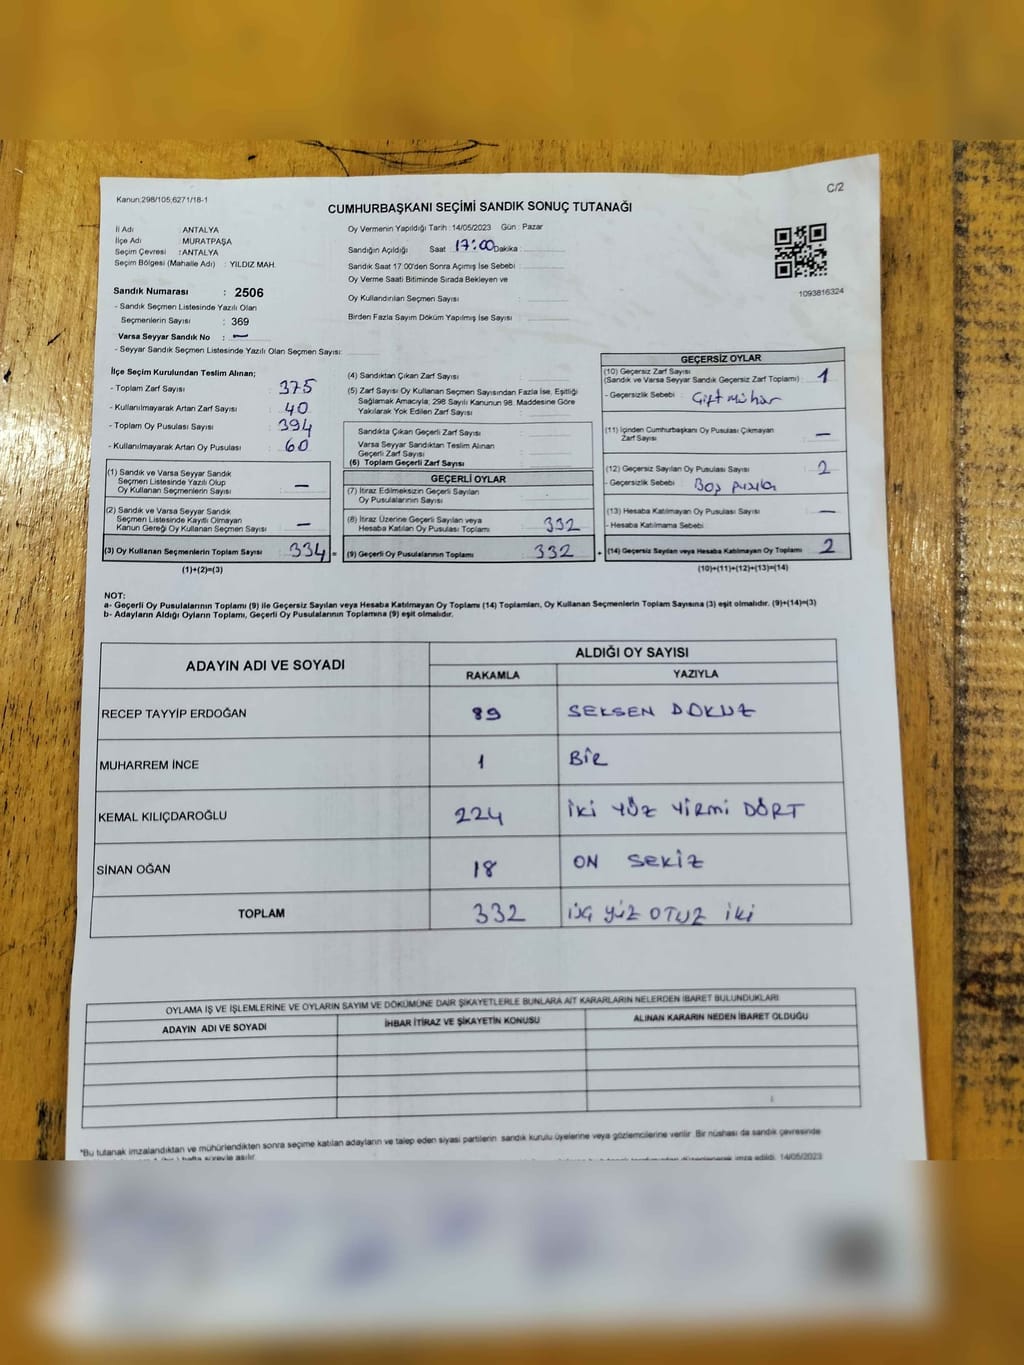 Kanun:298/105,6271/18-1
C/2
CUMHURBAŞKANI SEÇİMİ SANDIK SONUÇ TUTANAĞI
İl Adı : ANTALYA
İlçe Adı : MURATPAŞA
Seçim Çevresi : ANTALYA
Seçim Bölgesi (Mahalle Adı) : YILDIZ MAH.
Sandık Numarası : 2506
- Sandık Seçmen Listesinde Yazılı Olan
Seçmenlerin Sayısı : 369
Varsa Seyyar Sandık No : —
- Seyyar Sandık Seçmen Listesinde Yazılı Olan Seçmen Sayısı:
Oy Vermenin Yapıldığı Tarih : 14/05/2023 Gün : Pazar
Sandığın Açıldığı Saat 17:00 Dakika :
Sandık Saat 17:00'den Sonra Açımış İse Sebebi :
Oy Verme Saati Bitiminde Sırada Bekleyen ve
Oy Kullandırılan Seçmen Sayısı :
Birden Fazla Sayım Döküm Yapılmış İse Sayısı :
1093816324
İlçe Seçim Kurulundan Teslim Alınan;
- Toplam Zarf Sayısı : 375
- Kullanılmayarak Artan Zarf Sayısı : 40
- Toplam Oy Pusulası Sayısı : 394
- Kullanılmayarak Artan Oy Pusulası : 60
(1) Sandık ve Varsa Seyyar Sandık
Seçmen Listesinde Yazılı Olup
Oy Kullanan Seçmenlerin Sayısı : —
(2) Sandık ve Varsa Seyyar Sandık
Seçmen Listesinde Kayıtlı Olmayan
Kanun Gereği Oy Kullanan Seçmen Sayısı : —
(3) Oy Kullanan Seçmenlerin Toplam Sayısı : 334 =
(1)+(2)=(3)
(4) Sandıktan Çıkan Zarf Sayısı :
(5) Zarf Sayısı Oy Kullanan Seçmen Sayısından Fazla İse, Eşitliği
Sağlamak Amacıyla; 298 Sayılı Kanunun 98. Maddesine Göre
Yakılarak Yok Edilen Zarf Sayısı :
Sandıkta Çıkan Geçerli Zarf Sayısı :
Varsa Seyyar Sandıktan Teslim Alınan
Geçerli Zarf Sayısı :
(6) Toplam Geçerli Zarf Sayısı :
GEÇERLİ OYLAR
(7) İtiraz Edilmeksizin Geçerli Sayılan
Oy Pusulalarının Sayısı :
(8) İtiraz Üzerine Geçerli Sayılan veya
Hesaba Katılan Oy Pusulası Toplamı : 332
(9) Geçerli Oy Pusulalarının Toplamı : 332 +
GEÇERSİZ OYLAR
(10) Geçersiz Zarf Sayısı
(Sandık ve Varsa Seyyar Sandık Geçersiz Zarf Toplamı) : 1
- Geçersizlik Sebebi : Çift mühür
(11) İçinden Cumhurbaşkanı Oy Pusulası Çıkmayan
Zarf Sayısı : —
(12) Geçersiz Sayılan Oy Pusulası Sayısı : 2
- Geçersizlik Sebebi : Boş
(13) Hesaba Katılmayan Oy Pusulası Sayısı : —
- Hesaba Katılmama Sebebi :
(14) Geçersiz Sayılan veya Hesaba Katılmayan Oy Toplamı : 2
(10)+(11)+(12)+(13)=(14)
NOT:
a- Geçerli Oy Pusulalarının Toplamı (9) ile Geçersiz Sayılan veya Hesaba Katılmayan Oy Toplamı (14) Toplamları, Oy Kullanan Seçmenlerin Toplam Sayısına (3) eşit olmalıdır. (9)+(14)=(3)
b- Adayların Aldığı Oyların Toplamı, Geçerli Oy Pusulalarının Toplamına (9) eşit olmalıdır.
ADAYIN ADI VE SOYADI
ALDIĞI OY SAYISI
RAKAMLA YAZIYLA
RECEP TAYYİP ERDOĞAN 89 SEKSEN DOKUZ
MUHARREM İNCE 1 BİR
KEMAL KILIÇDAROĞLU 224 İKİ YÜZ YİRMİ DÖRT
SİNAN OĞAN 18 ON SEKİZ
TOPLAM 332 ÜÇ YÜZ OTUZ İKİ
OYLAMA İŞ VE İŞLEMLERİNE VE OYLARIN SAYIM VE DÖKÜMÜNE DAİR ŞİKAYETLERLE BUNLARA AİT KARARLARIN NELERDEN İBARET BULUNDUKLARI
ADAYIN ADI VE SOYADI İHBAR İTİRAZ VE ŞİKAYETİN KONUSU ALINAN KARARIN NEDEN İBARET OLDUĞU
*Bu tutanak imzalandıktan ve mühürlendikten sonra seçime katılan adayların ve talep eden siyasi partilerin sandık kurulu üyelerine veya gözlemcilerine verilir. Bir nüshası da sandık çevresinde
hafta süreyle asılır. imza edildi. 14/05/2023